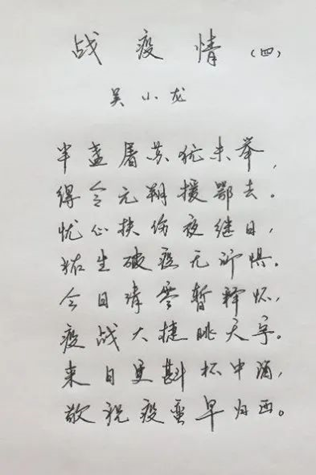 战疫情（四）
吴小龙
半盏屠苏犹未举，
得令元朔援鄂去。
忧心扶伤夜继日，
拓生破疫无所惧。
今日清零暂释怀，
疫战大捷眺天宇。
来日更斟杯中酒，
敬祝疫蛮早归西。